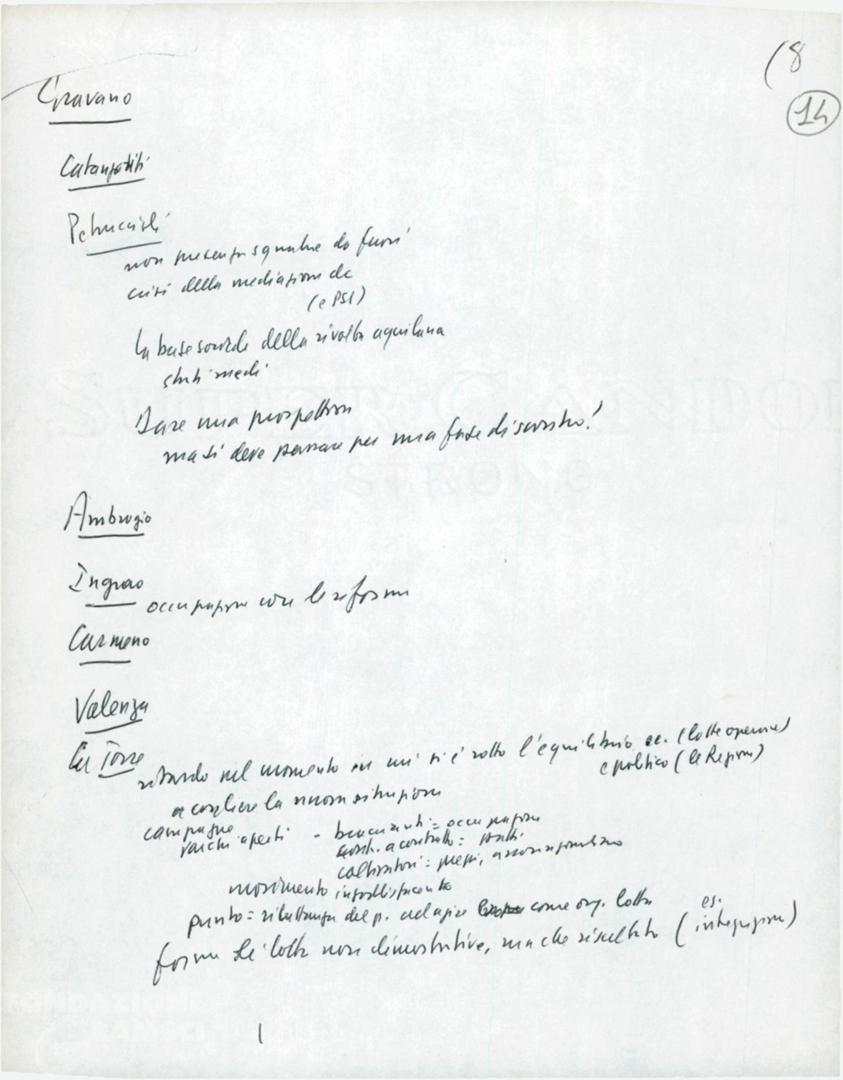 (8
14
Gravano
Catanzariti
Petruccioli
non presenza squadre da fuori
crisi della mediazione dc
(e PSI)
la base sociale della rivolta aquilana
strati medi
Dare una prospettiva
ma si deve passare per una fase di scontro!
Ambrogio
Ingrao
occupazione con le riforme
Carmeno
Valenza
La Torre
ritardo nel momento in cui si è rotto l'equilibrio ec. (lotte operaie)
e politico (le Regioni)
a cogliere la nuova situazione
campagne
varchi aperti - braccianti = occupazione
contr. a contratto = patti
coltivatori = prezzi, associazionismo
movimento insoddisfacente
punto = riluttanza del p. ad agire come org. lotta
forme di lotta non dimostrative, ma che risultato (es.
integrazione)
SUPER CANDOR
STRONG
FONDAZIONE
GRAMSCI